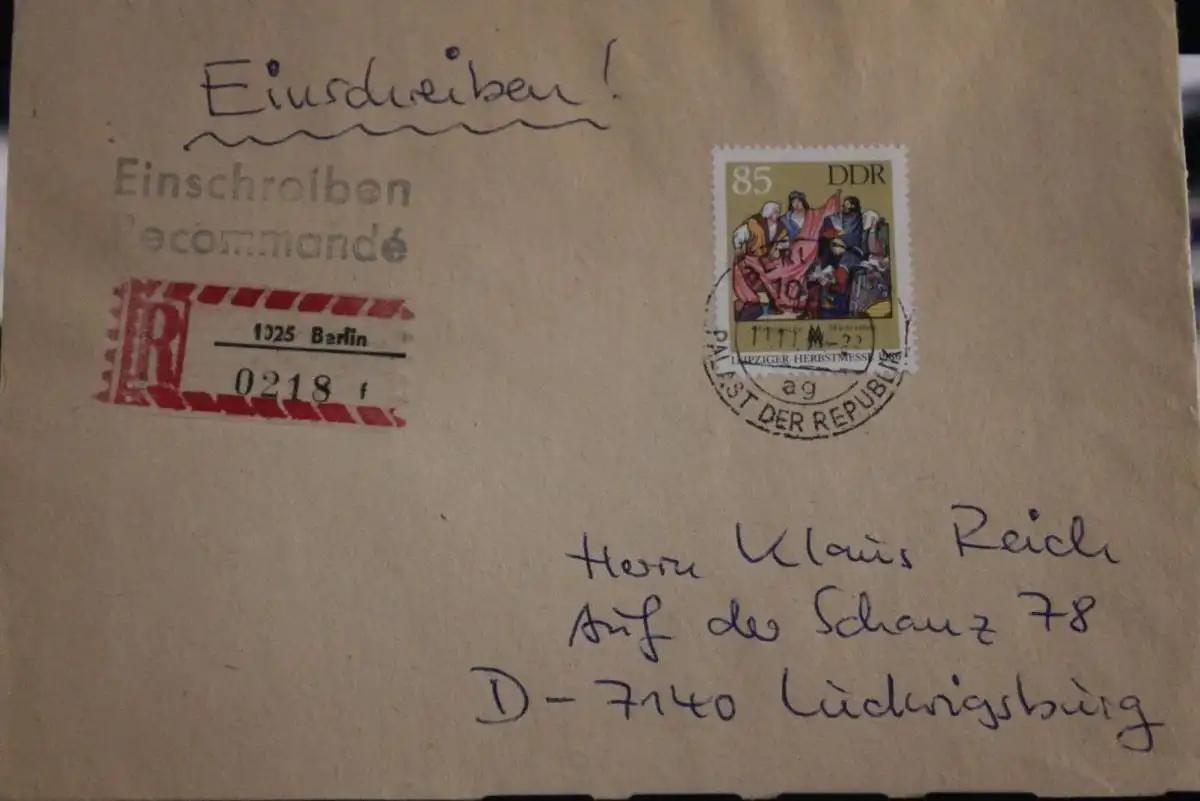 Einschreiben!
Einschreiben
Recommandé
R
1025 Berlin
0218 f
85 DDR
LEIPZIGER HERBSTMESSE
ag
PALAST DER REPUBLIK
Herrn Klaus Reich
Auf der Schanz 78
D-7140 Ludwigsburg